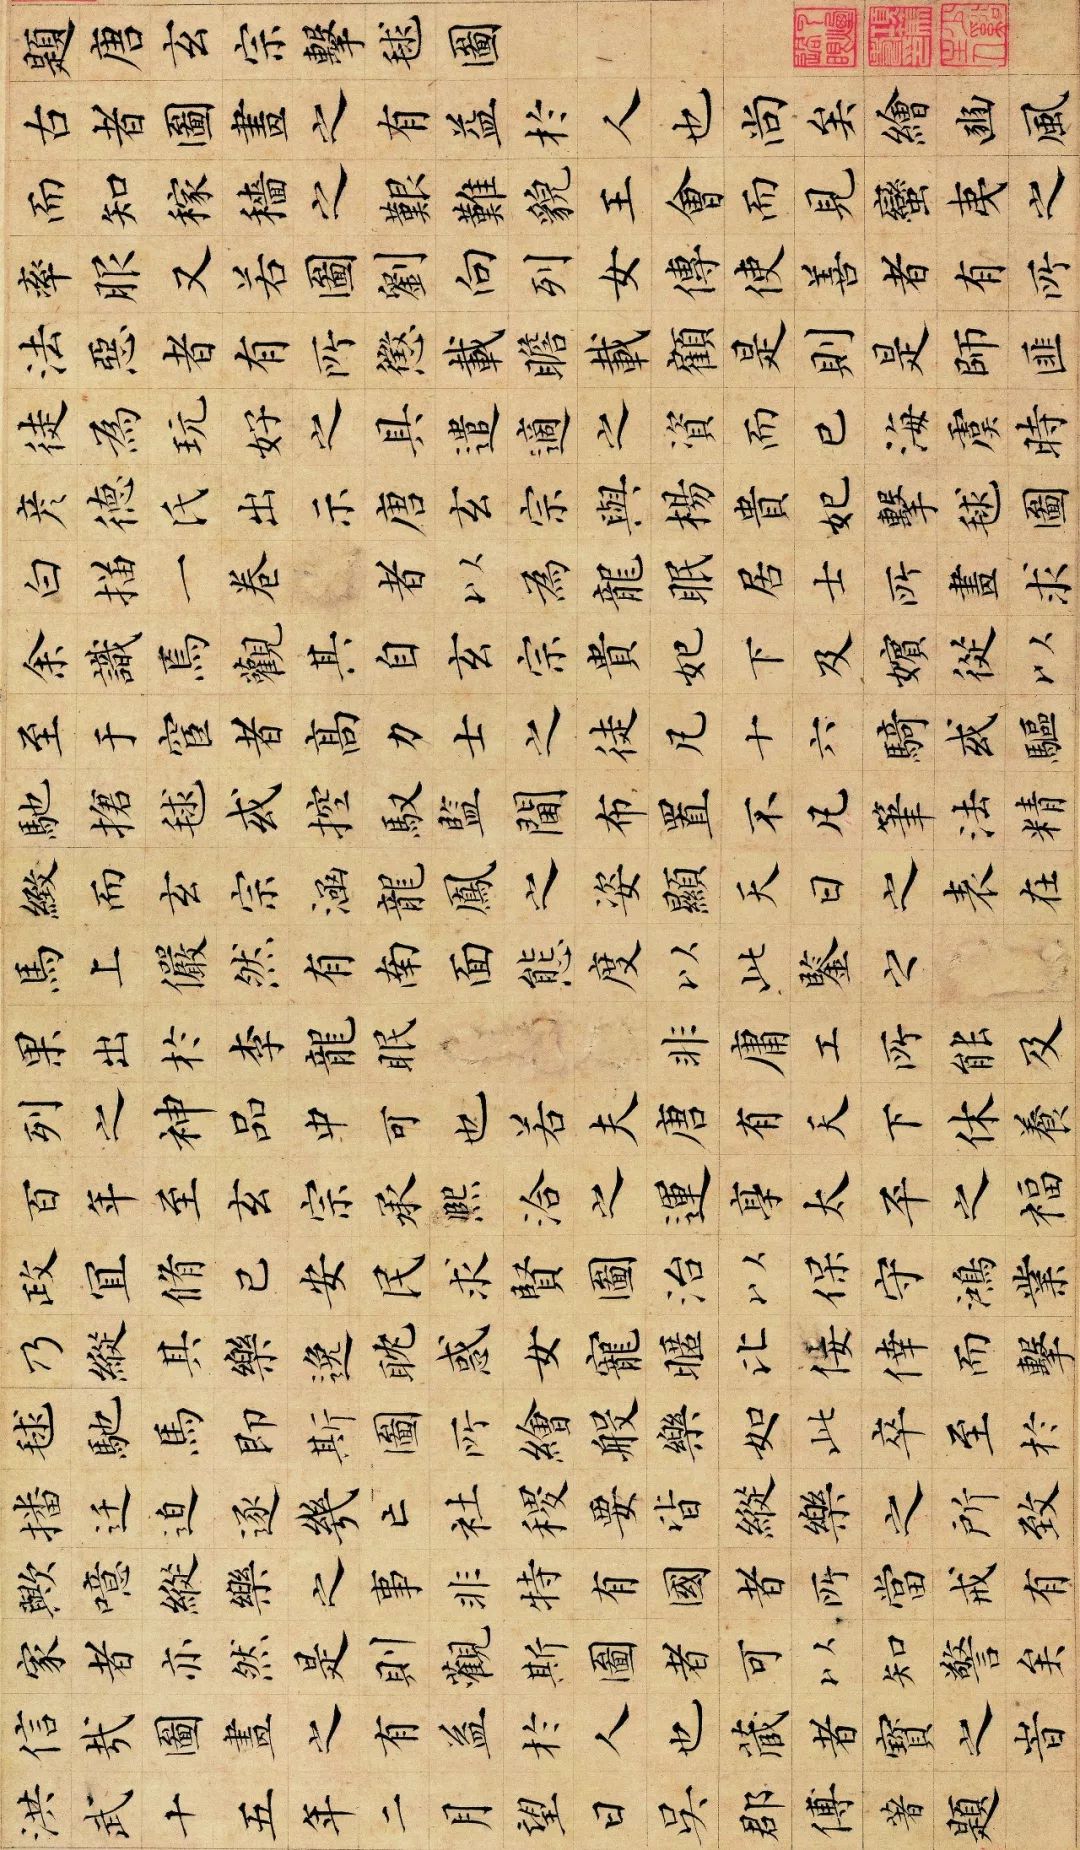 題唐玄宗擊毬圖
古者圖畫之有益於人也尚矣繪豳風
而知稼穡之艱難貌王會而見蠻夷之
率服又若圖劉向列女傳使善者有所
法惡者有所懲載瞻載顧是則是師匪
徒為玩好之具遣適之資而已海虞時
彥德氏出示唐玄宗與楊貴妃擊毬圖
白描一卷 者以為龍眠居士所畫求
余識焉觀其自玄宗貴妃下及嬪從以
至于宦者高力士之徒凡十六騎或驅
馳搶毬或控馭監 布置不凡筆法精
緻而玄宗涵龍鳳之姿顯天日之表在
馬上儼然有南面態度以此鑒之
果出於李龍眠 非庸工所能及
列之神品中可也若夫唐有天下休養
百年至玄宗承熙洽之運享太平之福
政宜脩己安民求賢圖治以保守鴻業
乃縱其樂逸耽惑女寵暱比佞倖而擊
毬馳馬即斯圖所繪般樂如此卒至於
播迁迫逐幾亡社稷要皆縱樂之所致
歟噫縱樂之事非特有國者所當戒有
家者亦然是則觀斯圖者可以知警矣
信哉圖畫之有益於人也藏者寶之旹
洪武十五年二月望日吳郡傅著題